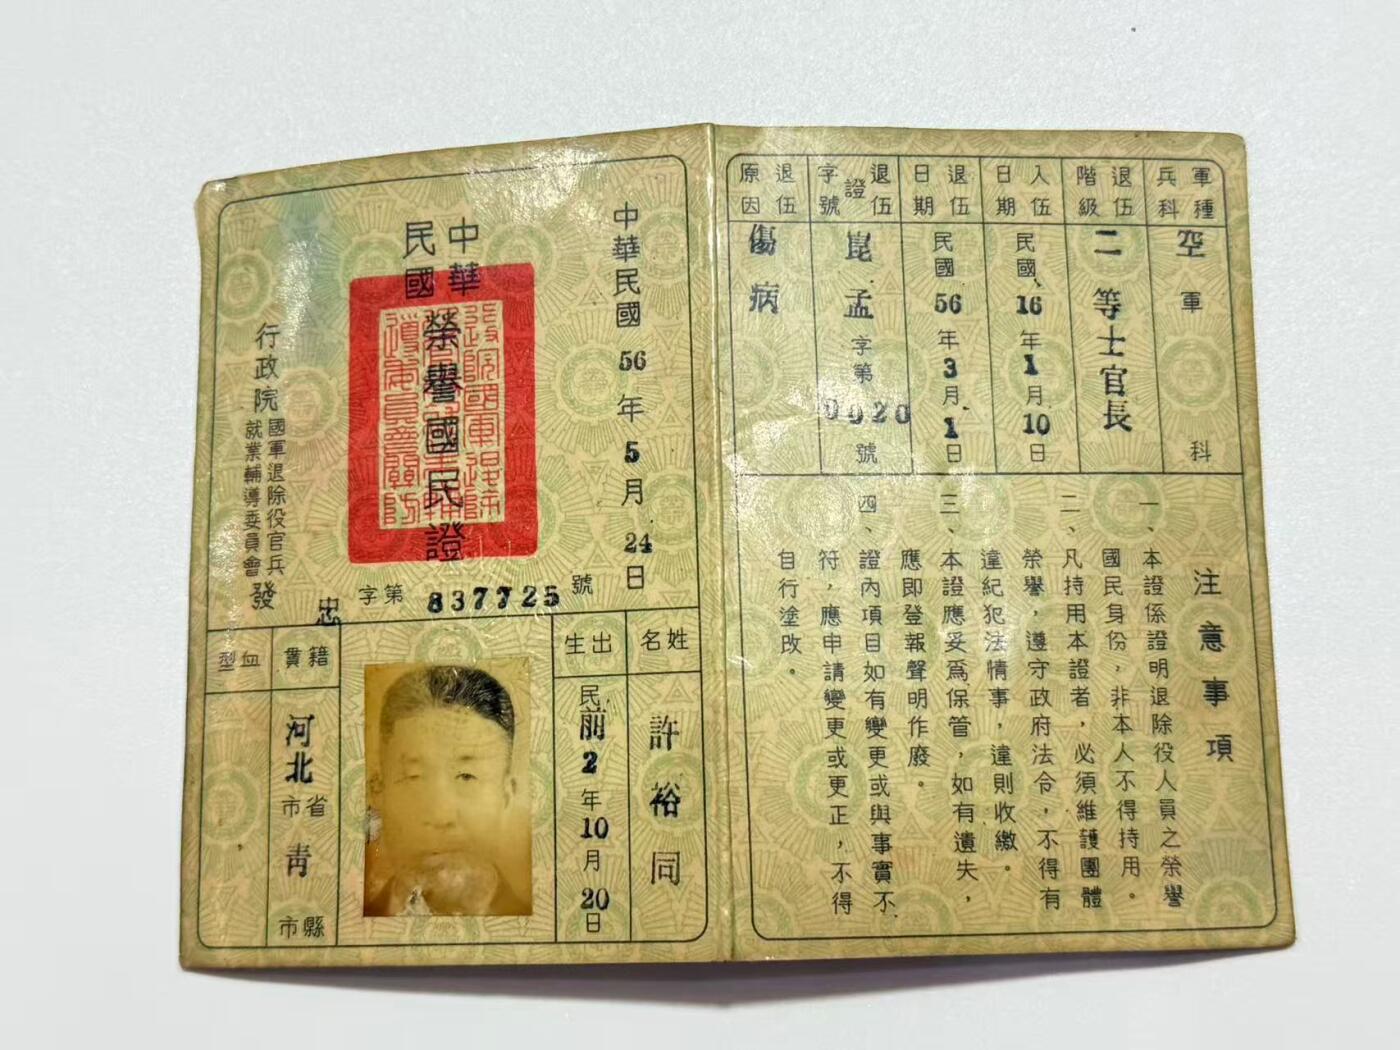 軍種兵科
空軍 科
退伍階級
二等士官長
入伍日期
民國16年1月10日
退伍日期
民國56年3月1日
退伍證字號
崑孟字第0020號
退伍原因
傷病
注意事項
一、本證係證明退除役人員之榮譽
國民身份，非本人不得持用。
二、凡持用本證者，必須維護團體
榮譽，遵守政府法令，不得有
違紀犯法情事，違則收繳。
三、本證應妥為保管，如有遺失，
應即登報聲明作廢。
四、證內項目如有變更或與事實不
符，應申請變更或更正，不得
自行塗改。
中華民國56年5月24日
中華民國
榮譽國民證
行政院國軍退除役官兵就業輔導委員會發
忠字第837725號
姓名
許裕同
出生
民前2年10月20日
籍貫
河北省市青縣市
血型